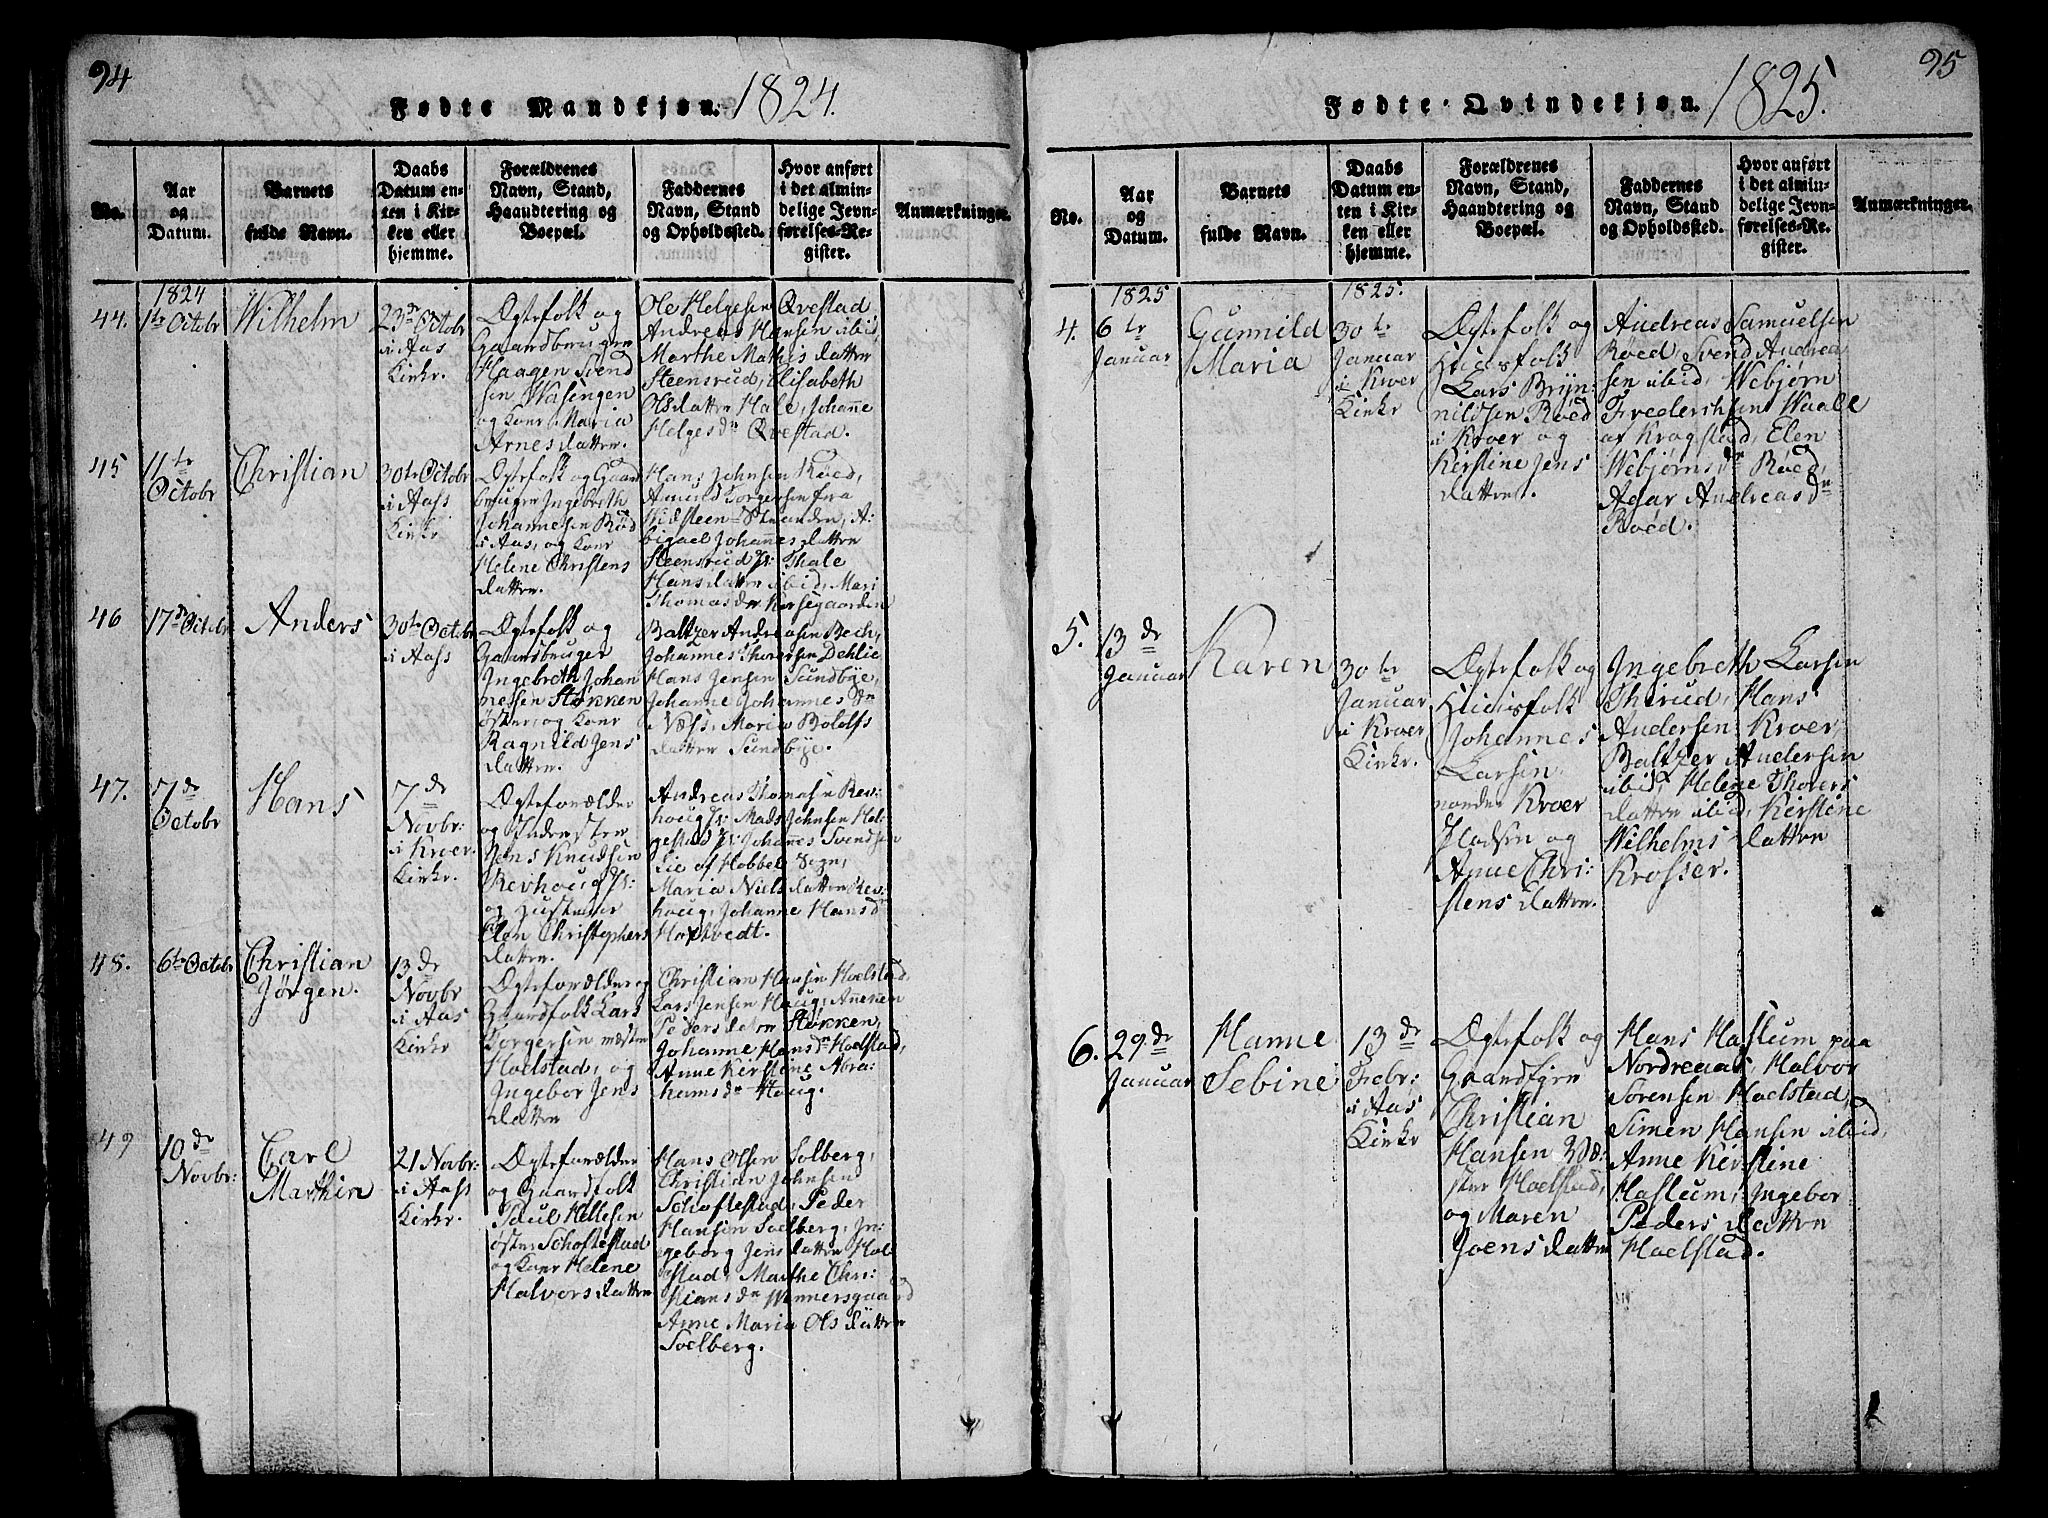 94
Fødte Mandkjøn. 1824.
No.
Aar
og
Datum.
Barnets
fulde Navn.
Daabs
Datum en-
ten i Kir-
ken eller
hjemme.
Forældrenes
Navn, Stand,
Haandtering og
Boepæl.
Faddernes
Navn, Stand
og Opholdssted.
Hvor anført
i det almin-
delige Jevn-
førelses-Re-
gister.
Anmærkninger.
44.
1824
1te Octobr
Wilhelm
23de Octobr
i Aas
Kirke.
Ægtefolk og
Gaardbruger
Haagen Svend
sen Wasengen
og Kone Maria
Arnesdatter.
Ole Helgesen Qvestad
Andreas Hansen ibid,
Marthe Mathisdatter
Steensrud, Elisabeth
Olsdatter Hale, Johanne
Helgesdr Qvestad.
45
11te
Octobr
Christian
30te Octobr
i Aass
Kirke
Ægtefolk og Gaard
bruger Ingebreth
Johannesen Röd
i Aas, og Kone
Helene Christens
datter.
Hans Johnsen Röed,
Amund Torgersen fra
Widsteen-Stranden, A:
bigael Johannesdatter
Steensrud, Thale
Hansdatter ibid, Mari
Thomasdr Korsegaarden
46
17de Octobr
Anders
30te Octobr
i Aass
Ægtefolk og
Gaardbruger
Ingebreth Johan
nessen Støkken
øster, og Kone
Ragnild Jens
datter.
Baltzer Andreasen Bech,
Johannes Thoresen Dehlie
Hans Jensen Sundbye,
Johanne Johannesdr
i Næss, Maria Bololfs
datter Sundbye.
47.
7de
Octobr
Hans
7de
Novbr:
i Kroer
Kirke.
Ægteforælder
og Inderster
Jens Knudsen
Revhoug
og Hustrue
Elen Christophers
datter.
Andreas Thomasen Rev:
houg, Mads Johnsen Hol
gestad, Johannes Svendsen
Lie af Hobbel Sogn,
Maria Nielsdatter Rev:
houg, Johanne Hansd
Hoxtvedt.
48.
6te Octobr
Christian
Jørgen.
13de
Novbr
i Aas
Kirke
Ægteforælder og
Gaardfolk Lars
Borgersen mæsten
Hoelstad, og
Ingebor Jens
datter
Christian Hansen Hoelstad,
Lars Jensen Houg, Anneken
Pedersdatter Støkken,
Johanne Hansdr Hoelstad,
Anne Kirstine Abra:
hamsdr Houg.
49
10de
Novbr:
Carl
Marthin
21 Novbr:
i Aass
Kirke.
Ægteforælder
og Gaardfolk
Poul Hellesen
øster Schoftestad
og Kone Helene
Halvorsdatter
Hans Olsen Solberg,
Christian Johnsen
Schoftestad, Peder
Hansen Soelberg, In
geborg Jensdatter Hol
stad, Marthe Chri:
stiansdr Winnersgaard
Anne Maria Olsdatter
Soelberg.
95
Fødte Qvindekjøn. 1825.
No.
Aar
og
Datum.
Barnets
fulde Navn.
Daabs
Datum en-
ten i Kir-
ken eller
hjemme.
Forældrenes
Navn, Stand,
Haandtering og
Boepæl.
Faddernes
Navn, Stand
og Opholdssted.
Hvor anført
i det almin-
delige Jevn-
førelses-Re-
gister.
Anmærkninger.
4.
1825
6te
Januar
Gunnild
Maria
1825.
30te
Januar
i Kroer
Kirke
Ægtefolk og
Huusfolk
Lars Bryn:
nildsen Röed
i Kroer og
Kirstine Jens
datter.
Andreas Samuelsen
Röed, Svend Andrea
sen ibid, Webjørn
Frederichsen Waale
af Krogstad, Elen
Webjørnsdr Röed,
Agar Andreasdr
Roed.
5.
13de
Januar
Karen
30te
Januar
i Kroer
Kirke.
Ægtefolk og
Huusfolk
Johannes
Larsen
nordre Kroer
Pladsen og
Anne Chri:
stensdatter.
Ingebreth Larsen
Thirud, Hans
Andersen Kroer,
Baltzer Andersen
ibid, Helene Thores
datter ibid, Kirstine
Wilhelmsdatter
Krosser.
6.
29de
Januar
Hanne
Sebine
13de
Febr:
i Aas
Kirke
Ægtefolk og
Gaardfgre
Christian
Hansen Wæ:
ster Hoelstad,
og Maren
Joensdatter
Hans Haslum paa
Nordreaas, Halvor
Sörensen Hoelstad,
Simen Hansen ibid,
Anne Kirstine
Haslum, Ingebor
Pedersdatter
Hoelstad.